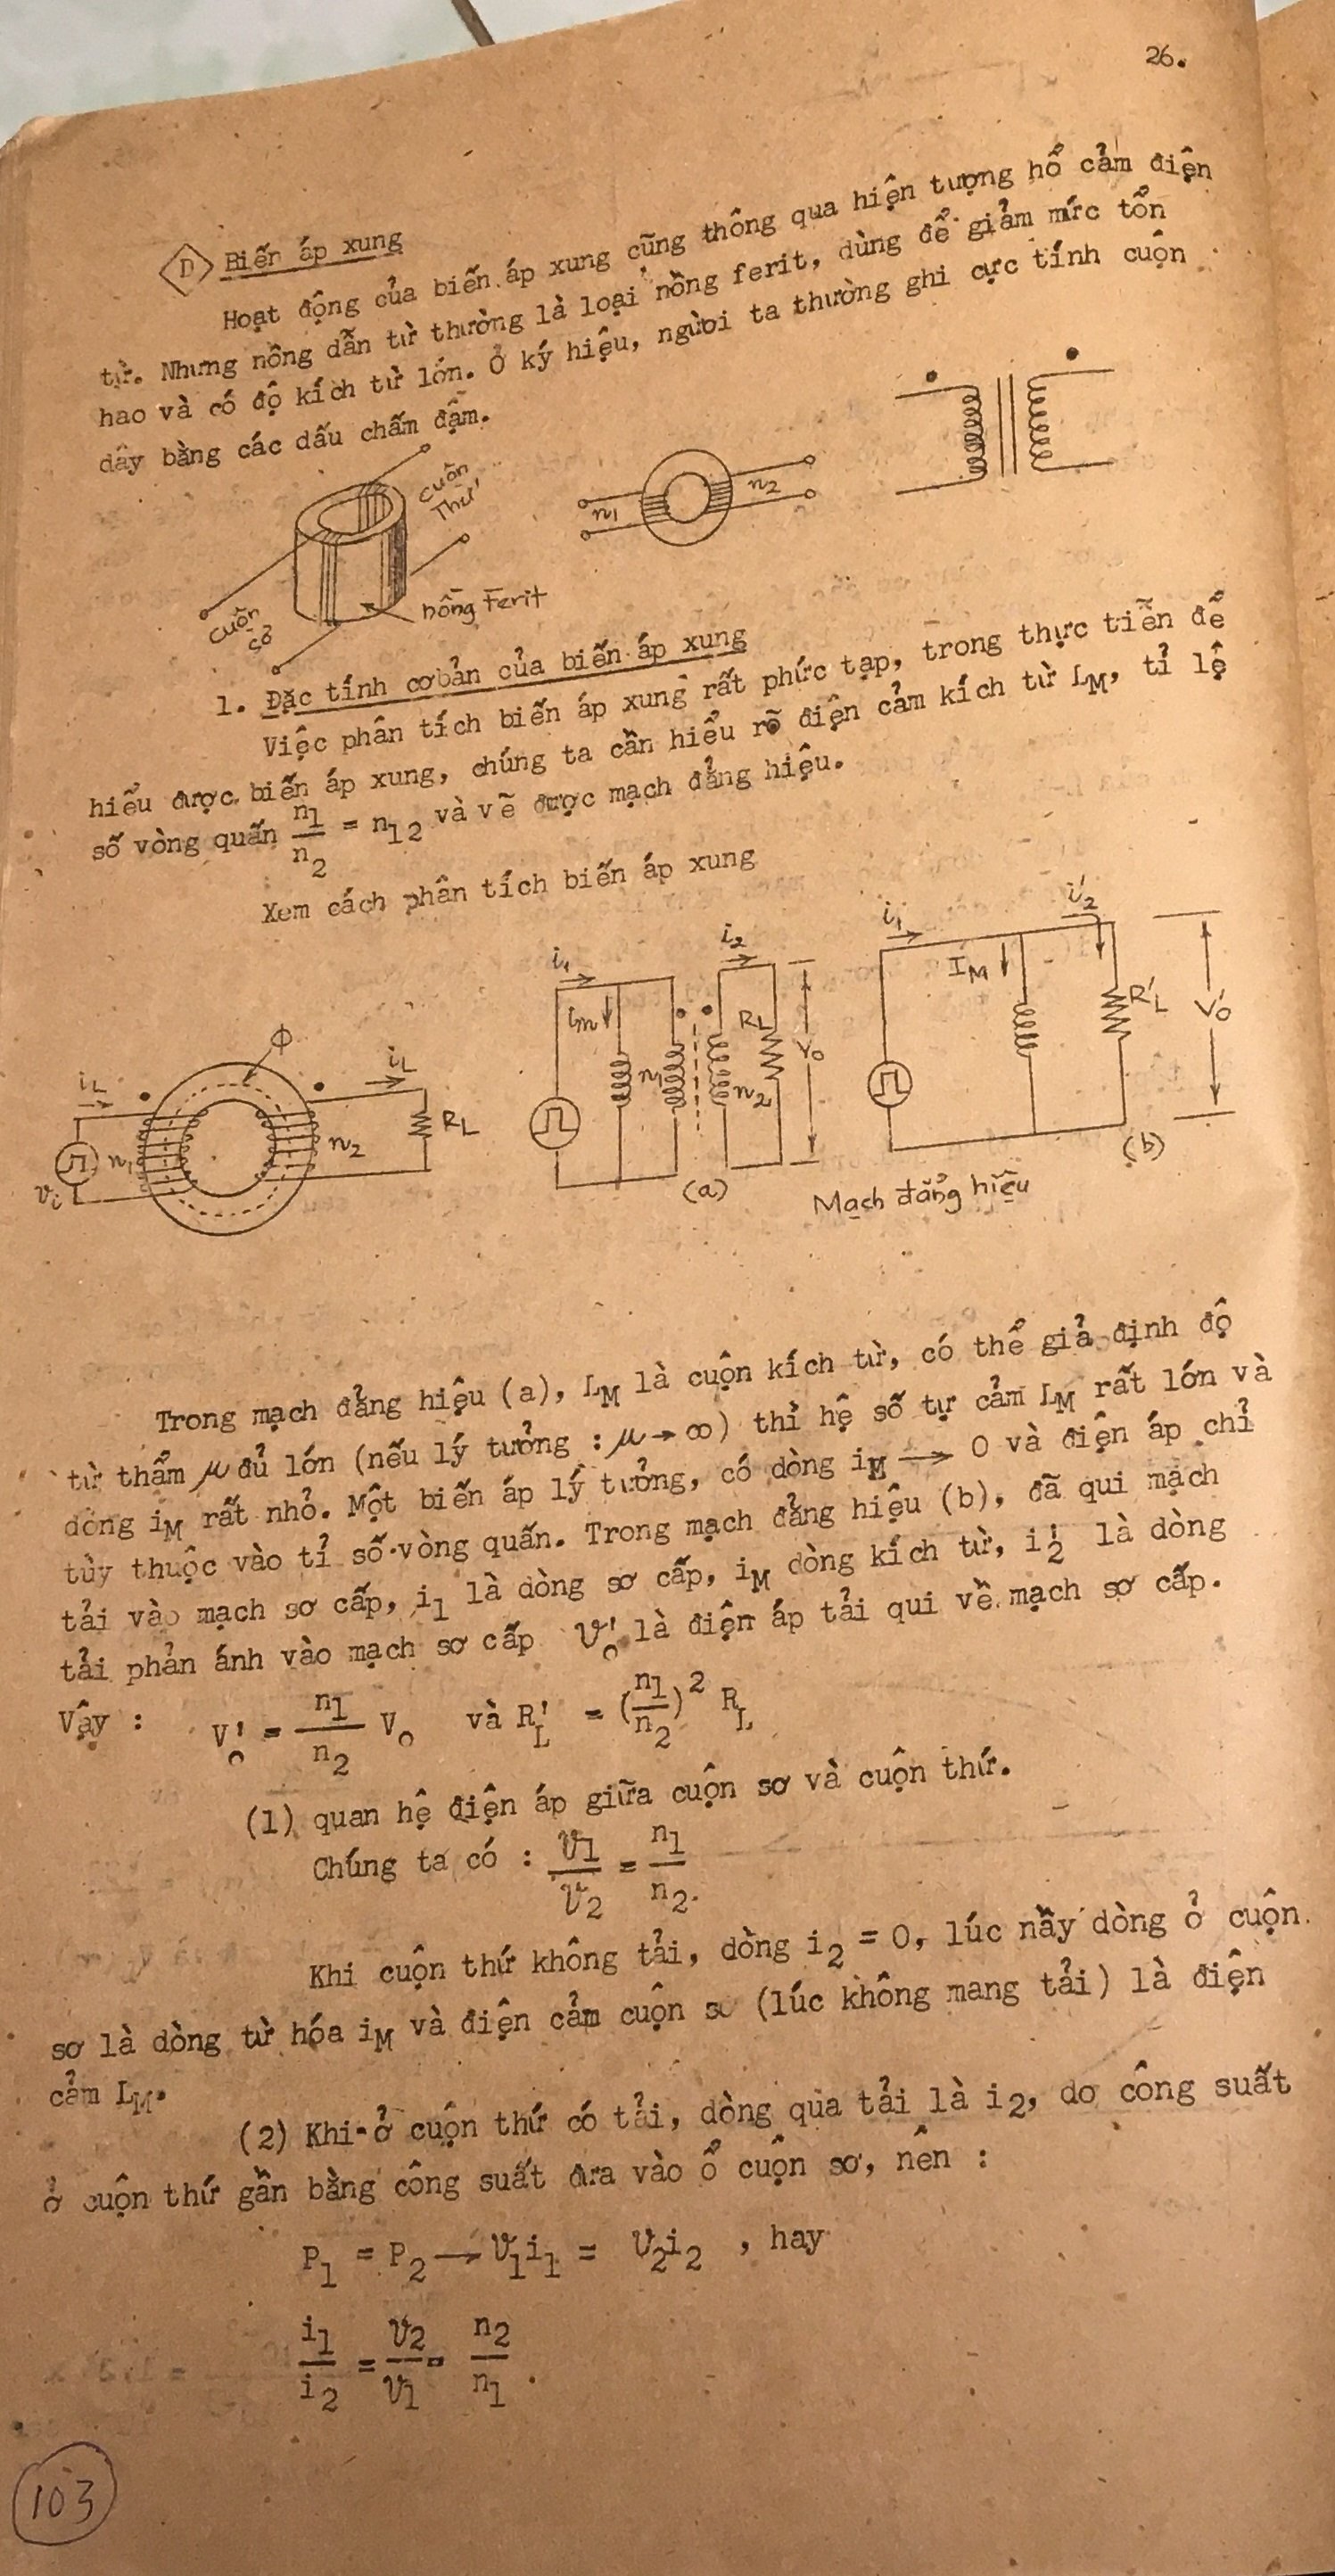 26.
D Biến áp xung
Hoạt động của biến áp xung cũng thông qua hiện tượng hổ cảm điện
từ. Nhưng nồng dẫn từ thường là loại nồng ferit, dùng để giảm mức tổn
hao và có độ kích từ lớn. Ở ký hiệu, người ta thường ghi cực tính cuộn
dây bằng các dấu chấm đậm.
cuồn
Thứ
n1
n2
cuồn
sơ
nồng Ferit
1. Đặc tính cơ bản của biến áp xung
Việc phân tích biến áp xung rất phức tạp, trong thực tiễn để
hiểu được biến áp xung, chúng ta cần hiểu rõ điện cảm kích từ LM, tỉ lệ
số vòng quấn n1/n2 = n12 và vẽ được mạch đẳng hiệu.
Xem cách phân tích biến áp xung
Φ
iL
iL
n1
n2
RL
vi
i1
im
n1
i2
RL
n2
Vo
(a)
i1
IM
i'2
R'L
V'o
(b)
Mạch đẳng hiệu
Trong mạch đẳng hiệu (a), LM là cuộn kích từ, có thể giả định độ
từ thẩm μ đủ lớn (nếu lý tưởng : μ → ∞) thì hệ số tự cảm LM rất lớn và
dòng iM rất nhỏ. Một biến áp lý tưởng, có dòng iM → 0 và điện áp chỉ
tùy thuộc vào tỉ số vòng quấn. Trong mạch đẳng hiệu (b), đã qui mạch
tải vào mạch sơ cấp, i1 là dòng sơ cấp, iM dòng kích từ, i'2 là dòng
tải phản ánh vào mạch sơ cấp V'o là điện áp tải qui về mạch sơ cấp.
Vậy : V'o = n1/n2 Vo và R'L = (n1/n2)2 RL
(1) quan hệ điện áp giữa cuộn sơ và cuộn thứ.
Chúng ta có : V1/V2 = n1/n2.
Khi cuộn thứ không tải, dòng i2 = 0, lúc nầy dòng ở cuộn
sơ là dòng từ hóa iM và điện cảm cuộn sơ (lúc không mang tải) là điện
cảm LM.
(2) Khi ở cuộn thứ có tải, dòng qua tải là i2, do công suất
ở cuộn thứ gần bằng công suất đưa vào ổ cuộn sơ, nên :
P1 = P2 → V1i1 = V2i2 , hay
i1/i2 = V2/V1 = n2/n1 .
103